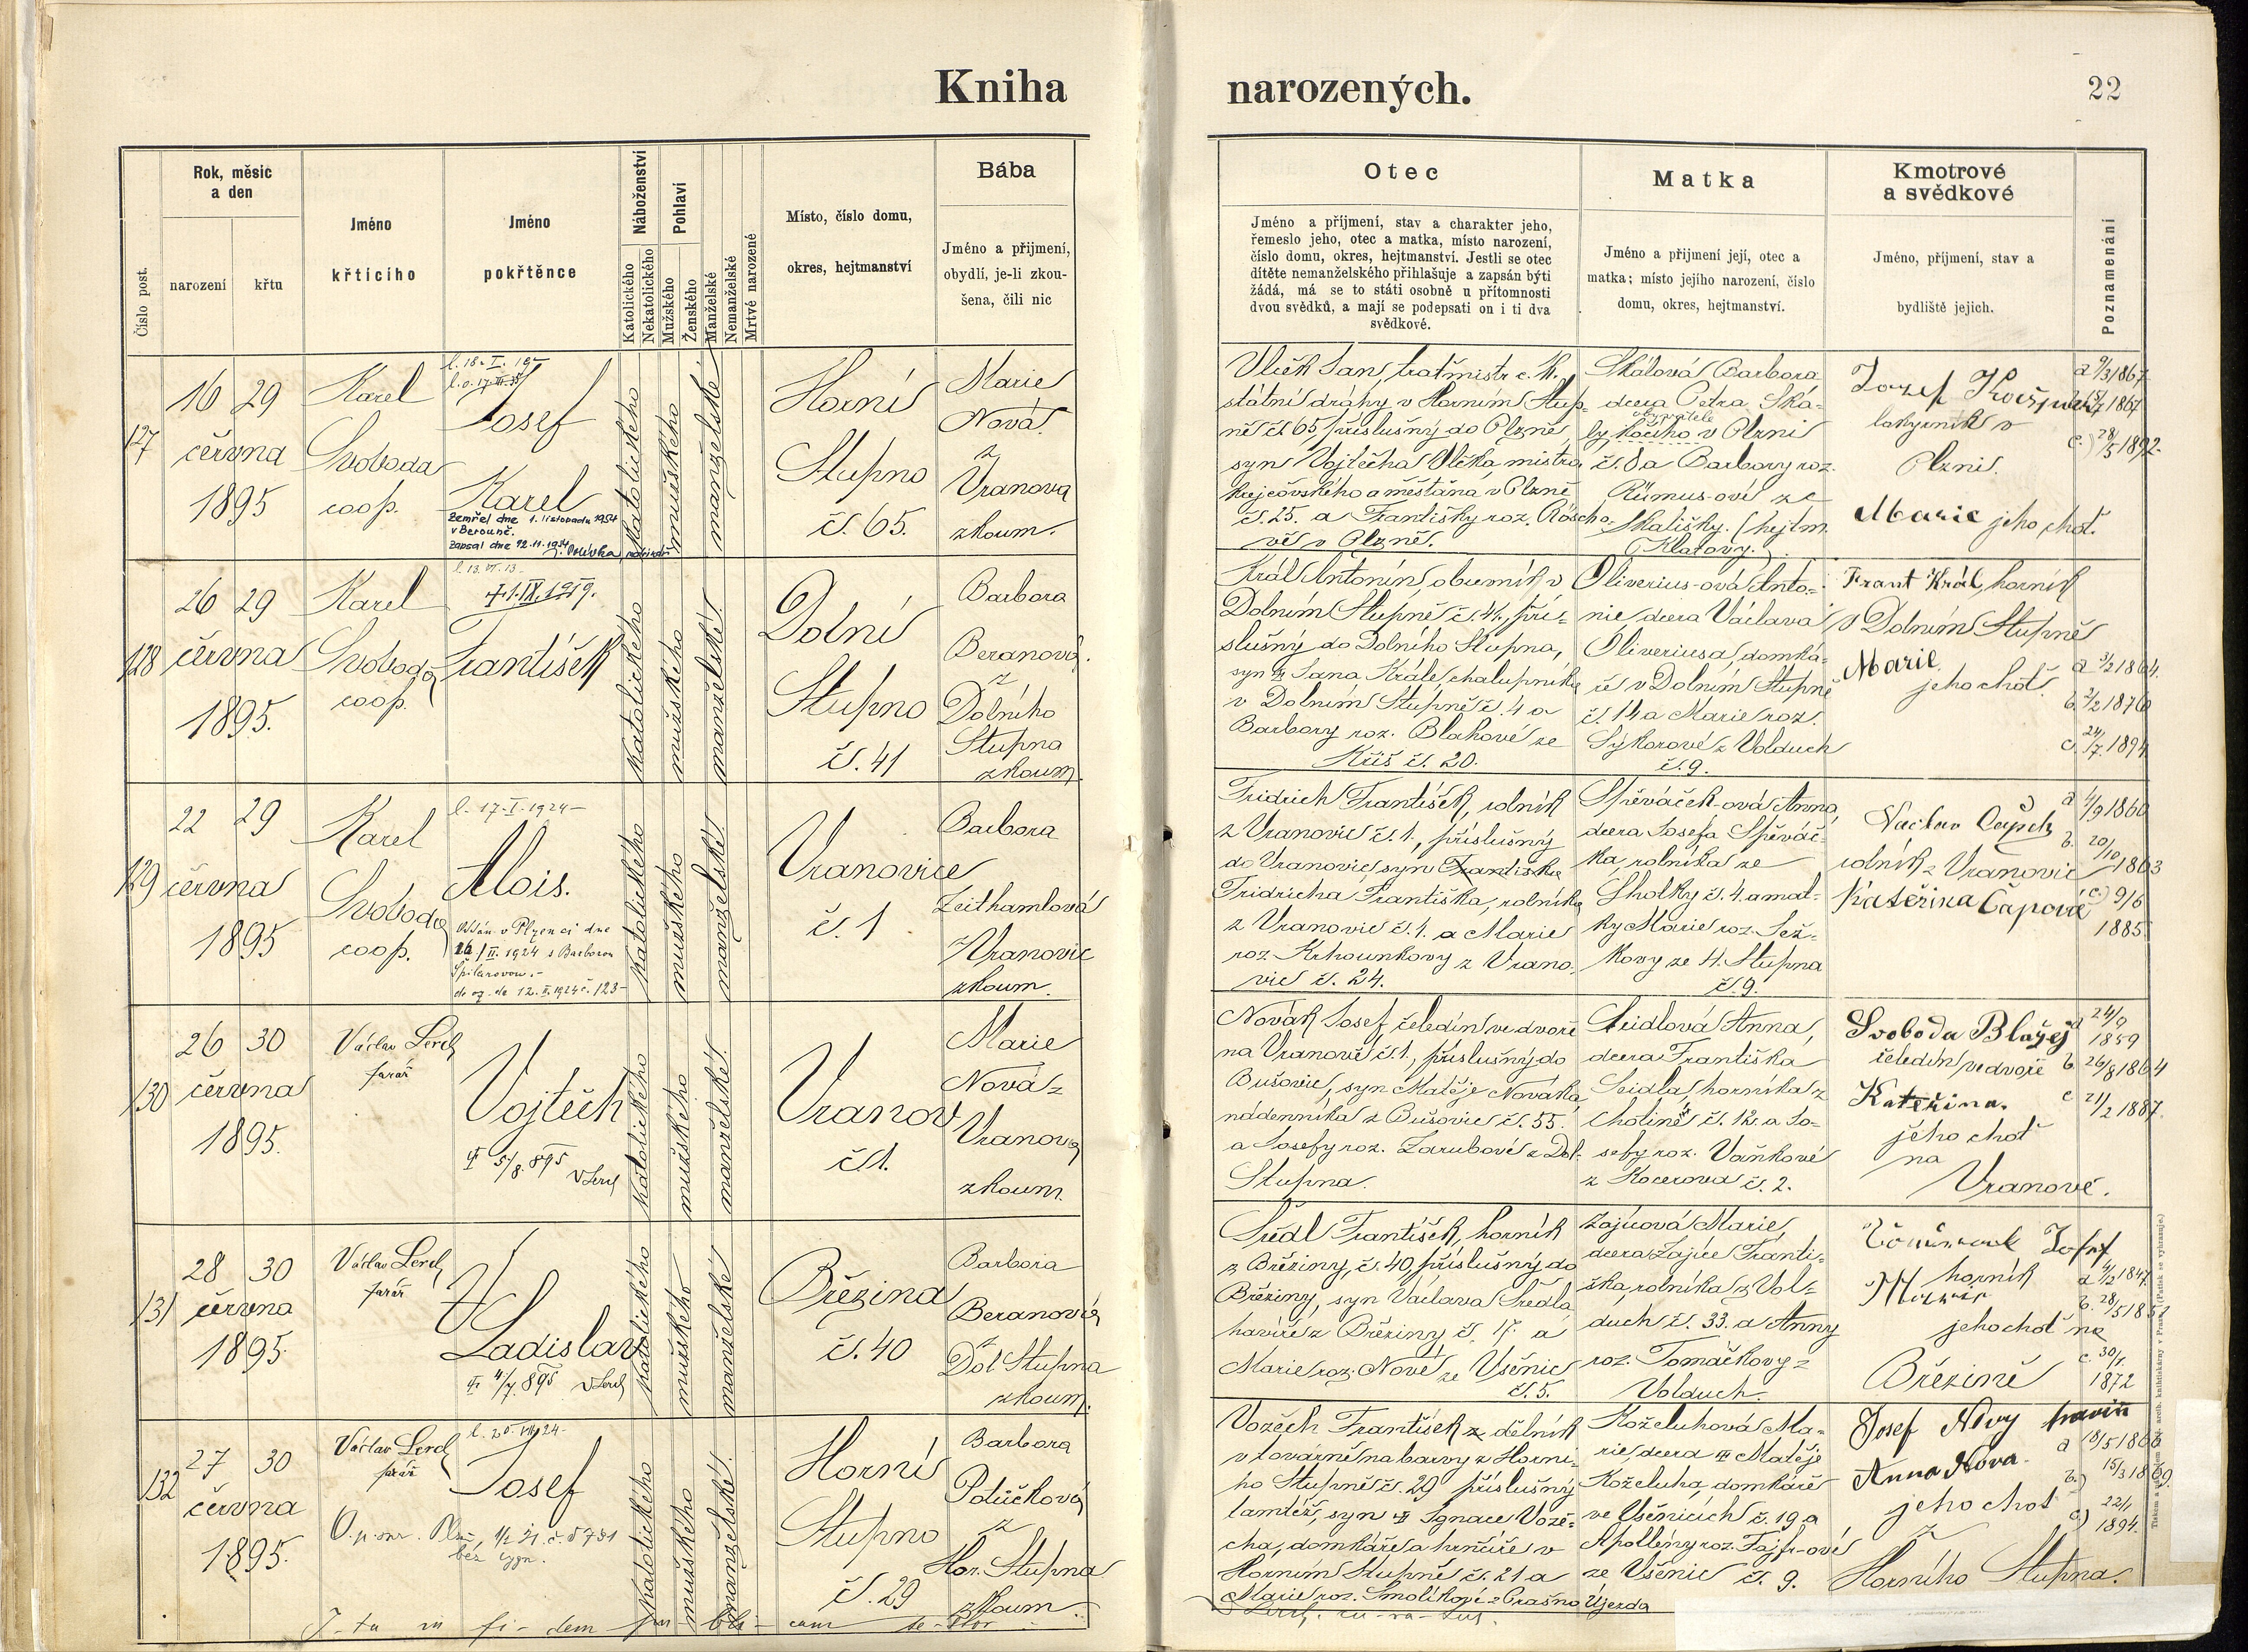 Kniha narozených.
22
Číslo post.
Rok, měsíc
a den
narození
křtu
Jméno
křtícího
Jméno
pokřtěnce
Náboženství
Katolického
Nekatolického
Pohlaví
Mužského
Ženského
Manželské
Nemanželské
Mrtvě narozené
Místo, číslo domu,
okres, hejtmanství
Bába
Jméno a přijmení,
obydlí, je-li zkou-
šena, čili nic
Otec
Jméno a příjmení, stav a charakter jeho,
řemeslo jeho, otec a matka, místo narození,
číslo domu, okres, hejtmanství. Jestli se otec
dítěte nemanželského přihlašuje a zapsán býti
žádá, má se to státi osobně u přítomnosti
dvou svědků, a mají se podepsati on i ti dva
svědkové.
Matka
Jméno a přijmení její, otec a
matka; místo jejího narození, číslo
domu, okres, hejtmanství.
Kmotrové
a svědkové
Jméno, příjmení, stav a
bydliště jejich.
Poznamenání
127
16 29
června
1895
Karel
Svoboda
coop.
Josef
Karel
Zemřel dne 1. listopadu 1954
v Berouně.
Zapsal dne 12.11.1954
katolického
mužského
manželské
Horní
Stupno
č. 65.
Marie
Nová
z
Vranova
zkoum.
Vlček Jan, traťmistr c. k.
státní dráhy v Horním Stup-
ně čs 65, příslušný do Plzně,
syn Vojtěcha Vlčka, mistra
krejčovského a měšťana v Plzně
č. 25. a Františky roz.
v Plzně.
Skálová Barbora
dcera Petra Ská-
ly kočího v Plzni
obyvatele
č. 8 a Barbory roz.
Rümus-ové ze
Skališky. (hejtm.
Klatovy.)
Josef
v
Plzni.
Marie jeho choť.
a 9/3 1867
1867
c.) 28/5 1892
128
26 29
června
1895.
Karel
Svoboda
coop.
l. 13. VI. 13
† 1.IX.1959.
František
katolického
mužského
manželské
Dolní
Stupno
č. 41
Barbora
Beranová.
z
Dolního
Stupna
zkoum.
Král Antonín, obuvník v
Dolním Stupně č. 41, pří-
slušný do Dolního Stupna,
syn Jana Krále, chalupníka
v Dolním Stupně č. 4 a
Barbory roz. Blahové ze
Kříš č. 20.
Oliverius-ová Anto-
nie, dcera Václava
Oliveriusa, domká-
ře v Dolním Stupně
č. 14 a Marie roz.
Sýkorové z Volduch
č. 9.
Frant Král, horník
v Dolním Stupně
Marie
jeho choť.
a 3/2 1864.
b. 2/2 1876
c. 24/7. 1894
129
22 29
června
1895
Karel
Svoboda
coop.
l. 17-I. 1924-
Alois.
Odán v Plzenci dne
16/II. 1924 s Barborou
Špilarovou.-
do og. de 12. II. 1924 č. 123-
katolického
mužského
manželské
Vranovice
č. 1
Barbora
Zeithamlová
z Vranovic
zkoum.
Fridrich František, rolník
z Vranovic č. 1., příslušný
do Vranovic, syn Františka
Fridricha Františka, rolníka
z Vranovic č. 1. a Marie
roz. Krhounkovy z Vrano-
vic č. 24.
Spěváček-ová Anna,
dcera Josefa Spěváč-
ka, rolníka ze
Lhotky č. 4. a mat-
ky Marie roz. Jež-
kovy ze H. Stupna
č. 9.
Václav
rolník z Vranovic
Kateřina Čapová
a 4/9 1860
b. 20/10 1863
c) 9/6
1885
130
26 30
června
1895.
Václav Lerch
farář
Vojtěch
† 5/8. 895 V Lerch
katolického
mužského
manželské
Vranov
č 1.
Marie
Nová z
Vranova
zkoum.
Novák Josef, čeledín ve dvoře
na Vranově č. 1., příslušný do
Bušovic, syn Matěje Nováka
nádenníka z Bušovic č. 55.
a Josefy roz. Zarubové z Dol.
Stupna.
Seidlová Anna,
dcera Františka
Seidla, horníka z
Cholině č. 12. a Jo-
sefy roz. Vaňkové
z Kocerova č. 2.
Svoboda Blažej
čeledín ve dvoře
Kateřina.
jeho choť
na
Vranově.
a 24/9
1859
b. 26/8 1864
c 21/2 1887.
131
28 30
června
1895.
Václav Lerch
farář
Ladislav
† 4/7. 895 V Lerch
katolického
mužského
manželské
Březina
č. 40
Barbora
Beranová
z
Dol Stupna
zkoum.
Šredl František, horník
z Březiny, č. 40, příslušný do
Březiny, syn Václava Šredla
havíře z Březiny č. 17. a
Marie roz. Nové ze Všenic
č. 5.
Zajícová Marie,
dcera Zajíce Franti-
ška, rolníka z Vol-
duch č. 33. a Anny
roz. Tomáčkovy z
Volduch.
Josef
horník
jeho choť na
Březině
a 4/2 1847
b. 28/5
c. 30/1.
1872
132
27 30
června
1895.
Václav Lerch
farář
Josef
katolického
mužského
manželské
Horní
Stupno
č. 29
Barbora
Potůčková
z
Hor. Stupna
zkoum.
Vozěch František z dělník
v továrně na barvy z Horní-
ho Stupně č. 29 příslušný
tamtéž, syn Ignace Vozě-
cha, domkáře a hrnčíře v
Horním Stupně č. 21 a
Marie roz. Smolíkové z Prašno Újezda
Koželuhová Ma-
rie, dcera Matěje
Koželuha, domkáře
ve Všenicích č. 19 a
Apolleny roz. Fajfr-ové
ze Všenic č. 9.
Josef Nový havíř
Anna Nová.
jeho choť
z
Horního Stupna.
a 18/5 1866
b.) 15/3 1869.
c) 22/1
1894.
I - ta in fi - dem pu - bli - cam